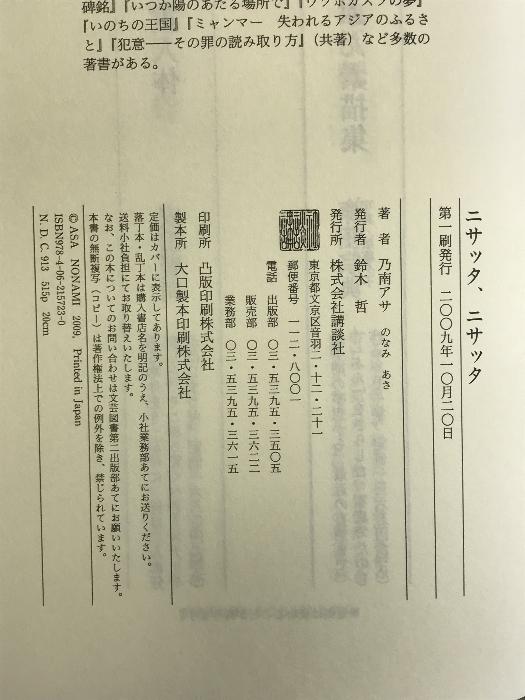 碑銘』『いつか陽のあたる場所で』『ウツボカズラの夢』
『いのちの王国』『ミャンマー　失われるアジアのふるさ
と』『犯意――その罪の読み取り方』（共著）など多数の
著書がある。
ニサッタ、ニサッタ
第一刷発行　二〇〇九年一〇月二〇日
著　者　乃南アサ　のなみ　あさ
発行者　鈴木　哲
発行所　株式会社講談社
東京都文京区音羽二‐一二‐二一
郵便番号　一一二‐八〇〇一
電話　出版部　〇三‐五三九五‐三五〇五
販売部　〇三‐五三九五‐三六二二
業務部　〇三‐五三九五‐三六一五
印刷所　凸版印刷株式会社
製本所　大口製本印刷株式会社
定価はカバーに表示してあります。
落丁本・乱丁本は購入書店名を明記のうえ、小社業務部あてにお送りください。
送料小社負担にてお取り替えいたします。
なお、この本についてのお問い合わせは文芸図書第二出版部あてにお願いいたします。
本書の無断複写（コピー）は著作権法上での例外を除き、禁じられています。
©ASA　NONAMI　2009,　Printed in Japan
ISBN978-4-06-215723-0
N. D. C. 913　515p　20cm